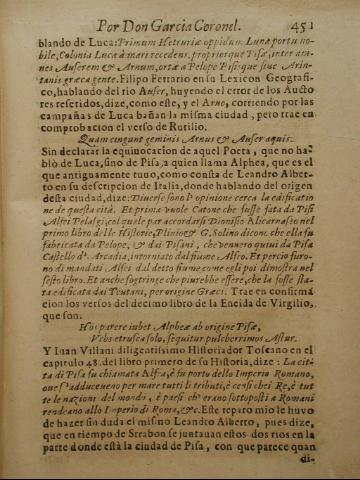 Por Don Garcia Coronel. 451
blando de Luca: Primum Hetruriæ oppidum Lunæ portu no-
bile, Colonia Luca à mari recedens, propriorque Pisæ, inter am-
nes Auserem & Arnum, ortæ a Pelope Pisisque siue Atin-
tanis græca gente. Filipo Ferrario en su Lexicon Geografi-
co, hablando del rio Auser, huyendo el error de los Aucto
res referidos, dize, como este, y el Arno, corriendo por las
campañas de Luca bañan la misma ciudad, pero trae en
comprobacion el verso de Rutilio.
Quam cingunt geminis Arnus & Auser aquis.
Sin declarar la equiuocacion de aquel Poeta, que no ha-
blò de Luca, sino de Pisa, a quien llama Alphea, que es el
que antiguamente tuuo, como consta de Leandro Alber-
to en su descripcion de Italia, donde hablando del origen
desta ciudad, dize: Diuerse sono l'opinione cerca la edificatio
ne de questa cità. Et prima vuole Catone che fusse fata da Pisi
Alfei Pelasgi, col quale par accordarsi Dionisio Alicarnaseo nel
primo libro delle Historie, Plinio & G. Solino dicon che ella fu
fabricata da Pelope, & dai Pisani, che vennero quiui da Pisa
Castello d'Arcadia, intorniato dal fiume Alfeo. Et percio furo-
no dimandati Alfei dal detto fiume come egli poi dimostra nel
sesto libro. Et anche sogtringe che piurebbe essere, che la fosse sta-
ta edificata dai Teutani, per origine Græci. Trae en confirma
cion los versos del decimo libro de la Eneida de Virgilio,
que son.
Hos parere iubet Alpheæ ab origine Pisæ,
Vrbs etrusca solo, sequitur pulcherrimus Astur.
Y Iuan Villani diligentissimo Historiador Toscano en el
capitulo 48. del libro primero de su Historia, dize: La cit-
tà di Pisa fu chiamata Alfea, è fu porto dello Imperio Romano,
oue s'adduceueno per mare tutti li tributi, è censi che i Re, è tut
te le nazioni del mondo, è paesi ch' erano sottoposti a Romani
rendeano allo Imperio di Roma, &c. Este reparo mio le huuo
de hazer sin duda el mismo Leandro Alberto, pues dize,
que en tiempo de Strabon se juntauan estos dos rios en la
parte donde està la ciudad de Pisa, con que parece quan
di-